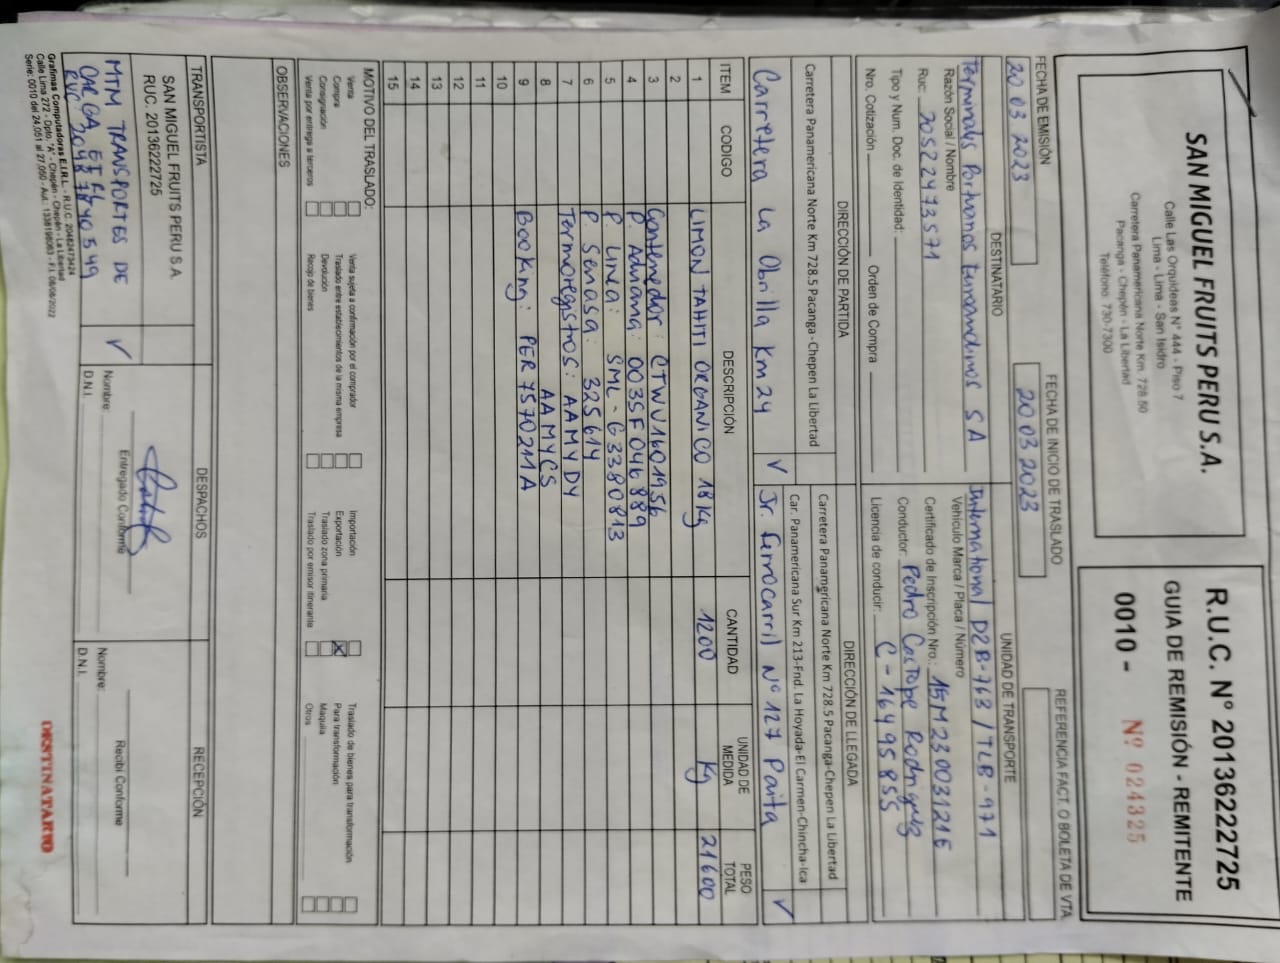 SAN MIGUEL FRUITS PERU S.A.
Calle Las Orquideas N° 444 - Piso 7
Lima - Lima - San Isidro
Carretera Panamericana Norte Km. 728.50
Pacanga - Chepén - La Libertad
Teléfono: 730-7300
R.U.C. N° 20136222725
GUIA DE REMISIÓN - REMITENTE
0010 - Nº 024325
FECHA DE EMISIÓN
20 03 2023
FECHA DE INICIO DE TRASLADO
20 03 2023
REFERENCIA FACT. O BOLETA DE VTA
DESTINATARIO
Terminales Portuarios Euroandinos SA
Razón Social / Nombre
Ruc: 20522473571
Tipo y Num. Doc. de Identidad:
Nro. Cotización Orden de Compra
UNIDAD DE TRANSPORTE
International D2B-763 / TLB-971
Vehículo Marca / Placa / Número
Certificado de Inscripción Nro.: 15M23003121E
Conductor: Pedro Castope Rodriguez
Licencia de conducir: C-16495855
DIRECCIÓN DE PARTIDA
Carretera Panamericana Norte Km 728.5 Pacanga-Chepen La Libertad
Carretera La Obrilla Km 24 ✓
DIRECCIÓN DE LLEGADA
Carretera Panamericana Norte Km 728.5 Pacanga-Chepen La Libertad
Car. Panamericana Sur Km 213-Fnd. La Hoyada-El Carmen-Chincha-Ica
Jr. Ferrocarril N° 127 Paita ✓
ITEM CODIGO DESCRIPCIÓN CANTIDAD UNIDAD DE MEDIDA PESO TOTAL
1 LIMON TAHITI ORGANICO 18 Kg 1200 Kg 21600
2
3 Contenedor: CTWU1601956
4 P. Aduana: 0035F046889
5 P. Linea: SML-G3380813
6 P. Senasa: 325614
7 Termoregistros: AAMYDY
8 AAMYCS
9 Booking: PER7570211A
10
11
12
13
14
15
MOTIVO DEL TRASLADO:
Venta
Compra
Consignación
Venta por entrega a terceros
Venta sujeta a confirmación por el comprador
Traslado entre establecimientos de la misma empresa
Devolución
Recojo de bienes
Importación
Exportación X
Traslado zona primaria
Traslado por emisor itinerante
Traslado de bienes para transformación
Para transformación
Maquila
Otros
OBSERVACIONES
TRANSPORTISTA
SAN MIGUEL FRUITS PERU S A
RUC. 20136222725
MTM TRANSPORTES DE ✓
CARGA EIRL
RUC 20487840549
DESPACHOS
Entregado Conforme
Nombre:
D.N.I.
RECEPCIÓN
Recibí Conforme
Nombre:
D.N.I.
Grafimas Computadoras E.I.R.L. - R.U.C. 20482473424
Calle Lima 272 - Dpto. "A" - Chepén - Chepén - La Libertad
Serie: 0010 del 24,051 al 27,050 - Aut.: 1338196063 - F.I. 08/08/2022
DESTINATARIO